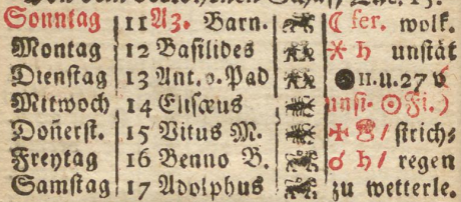 Sonntag 11 A3. Barn. ☾ fer. wolk.
Montag 12 Basilides ⚹ ♄ unstät
Dienstag 13 Ant. v. Pad ●11.u.27 v
Mittwoch 14 Elisæus unsi. ☉Fi.)
Doñerst. 15 Vitus M. / strich⸗
Freytag 16 Benno B. ☌ ♄/ regen
Samstag 17 Adolphus zu wetterle.